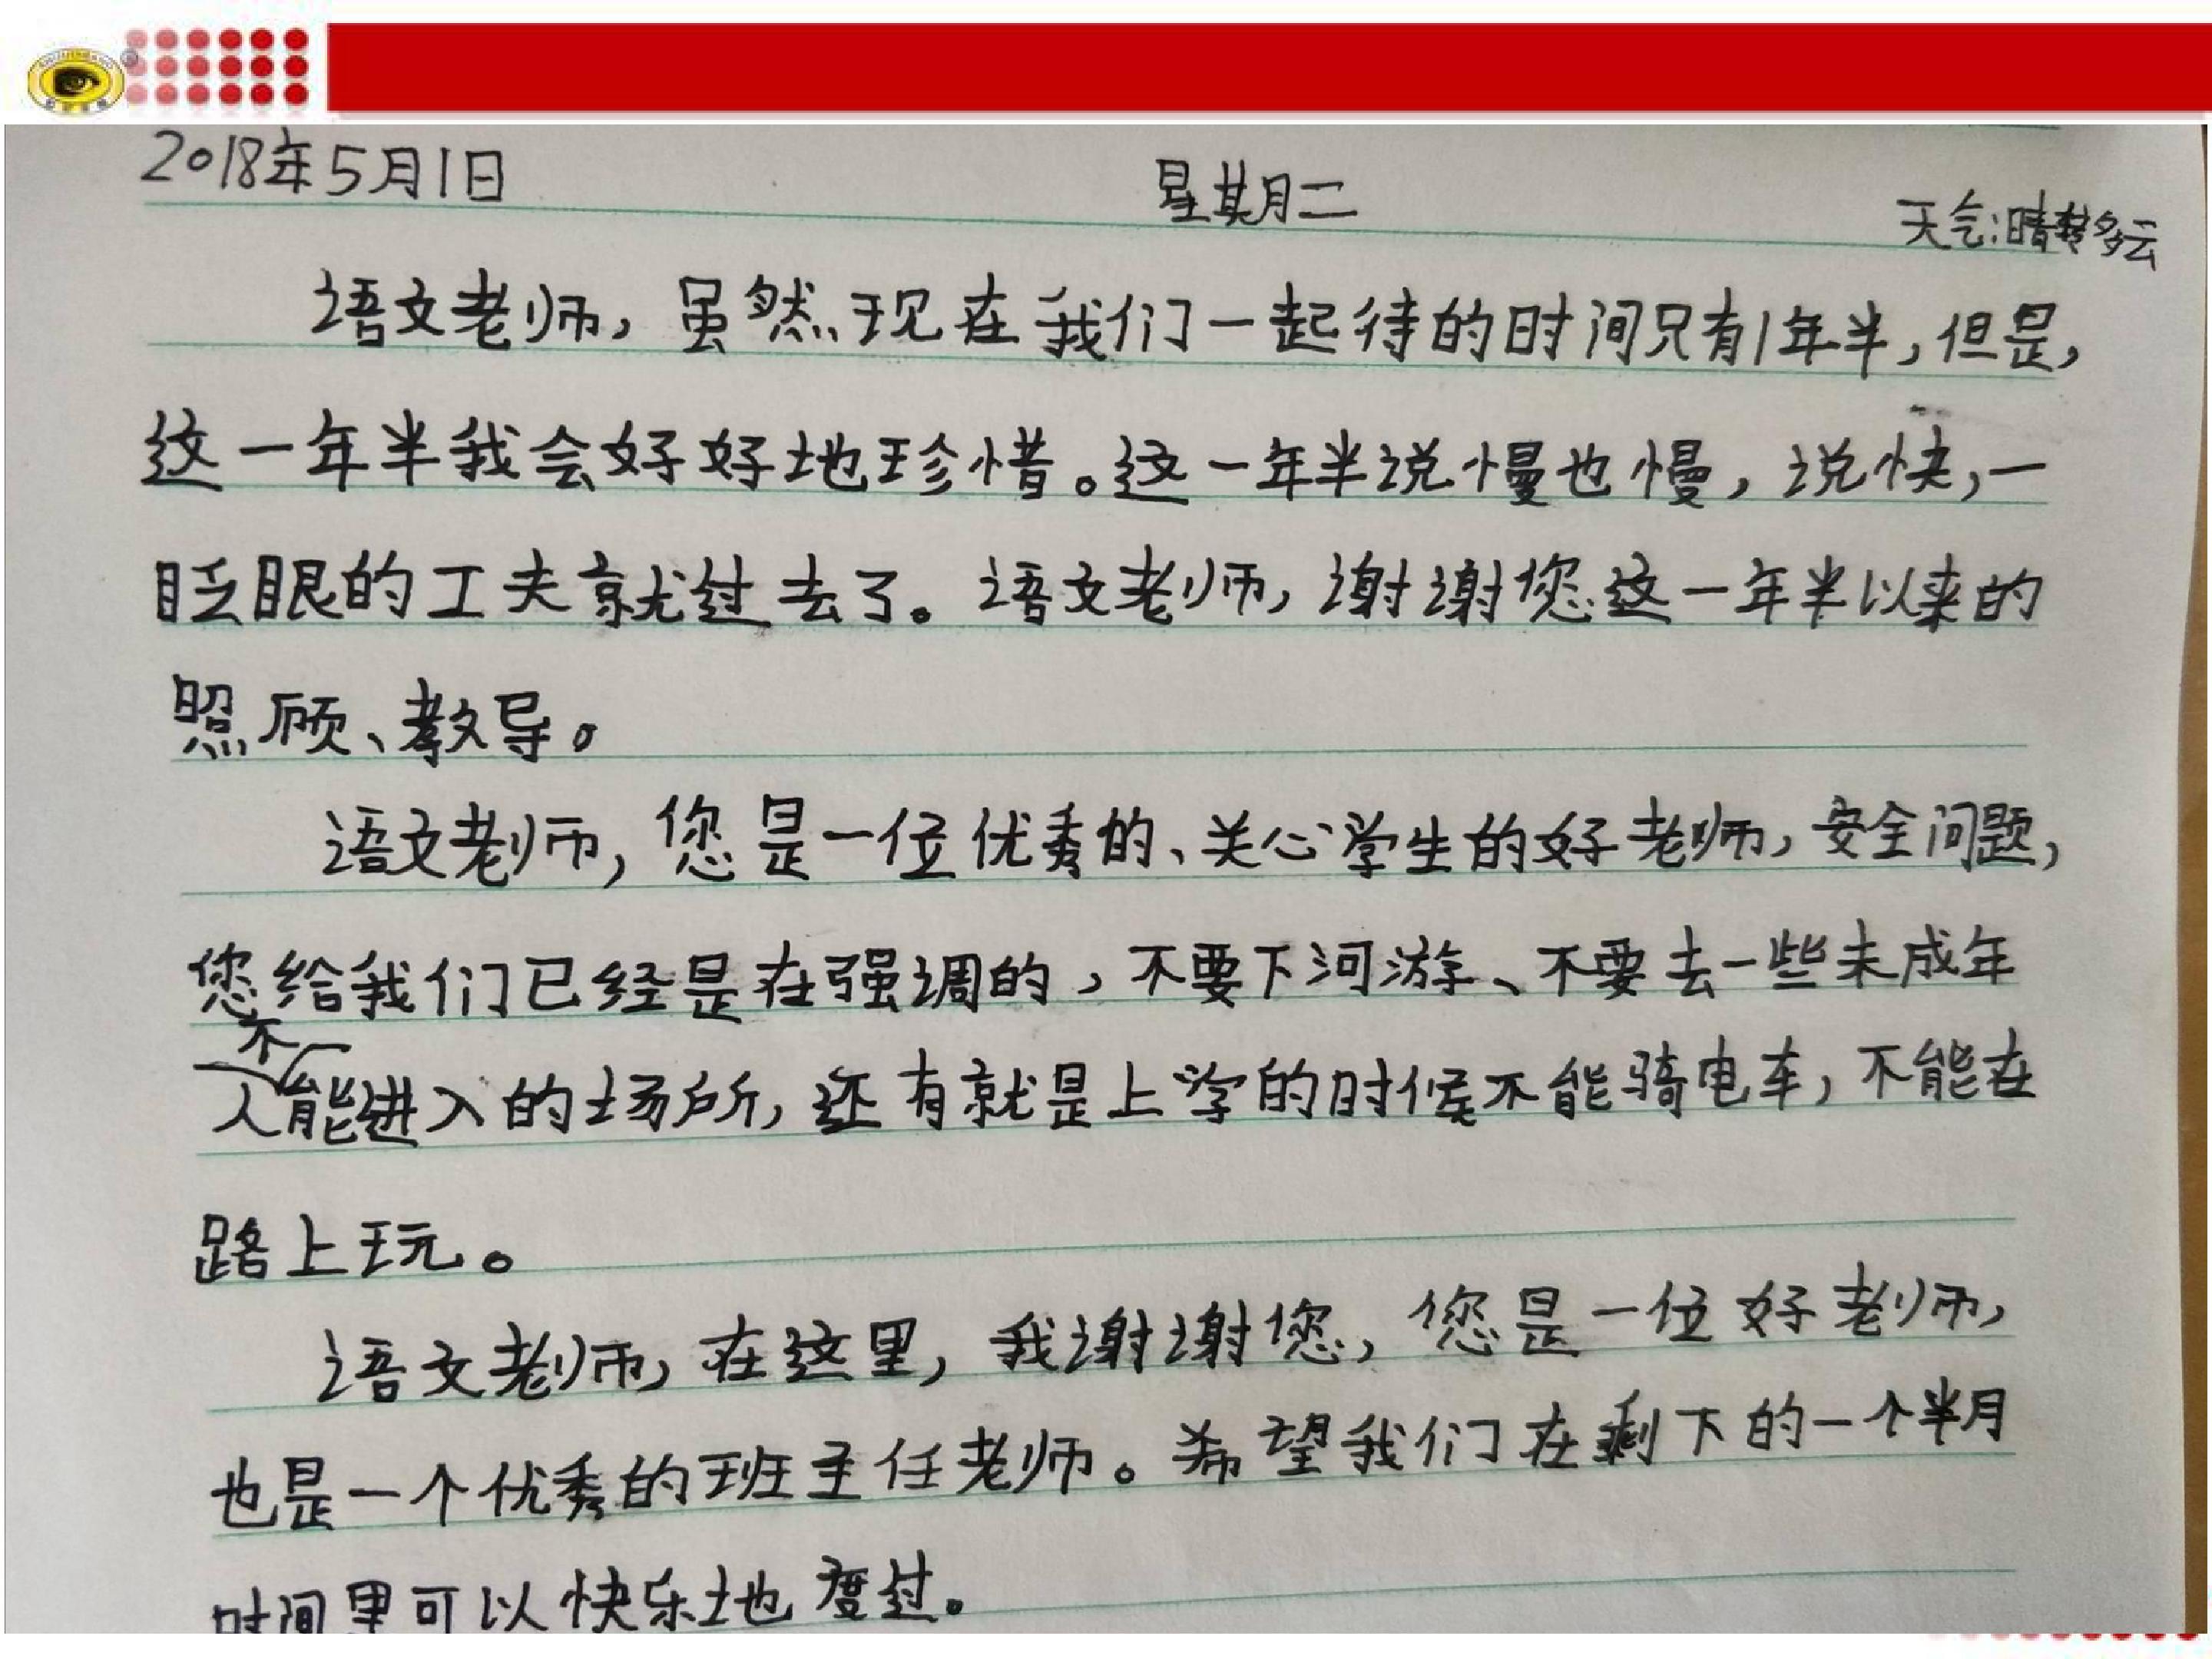 2018年5月1日 星期二 天气:晴转多云
语文老师，虽然现在我们一起待的时间只有1年半，但是，
这一年半我会好好地珍惜。这一年半说慢也慢，说快，一
眨眼的工夫就过去了。语文老师，谢谢您这一年半以来的
照顾、教导。
语文老师，您是一位优秀的、关心学生的好老师，安全问题，
您给我们已经是在强调的，不要下河游、不要去一些未成年
人不能进入的场所，还有就是上学的时候不能骑电车，不能在
路上玩。
语文老师，在这里，我谢谢您，您是一位好老师，
也是一个优秀的班主任老师。希望我们在剩下的一个半月
时间里可以快乐地度过。